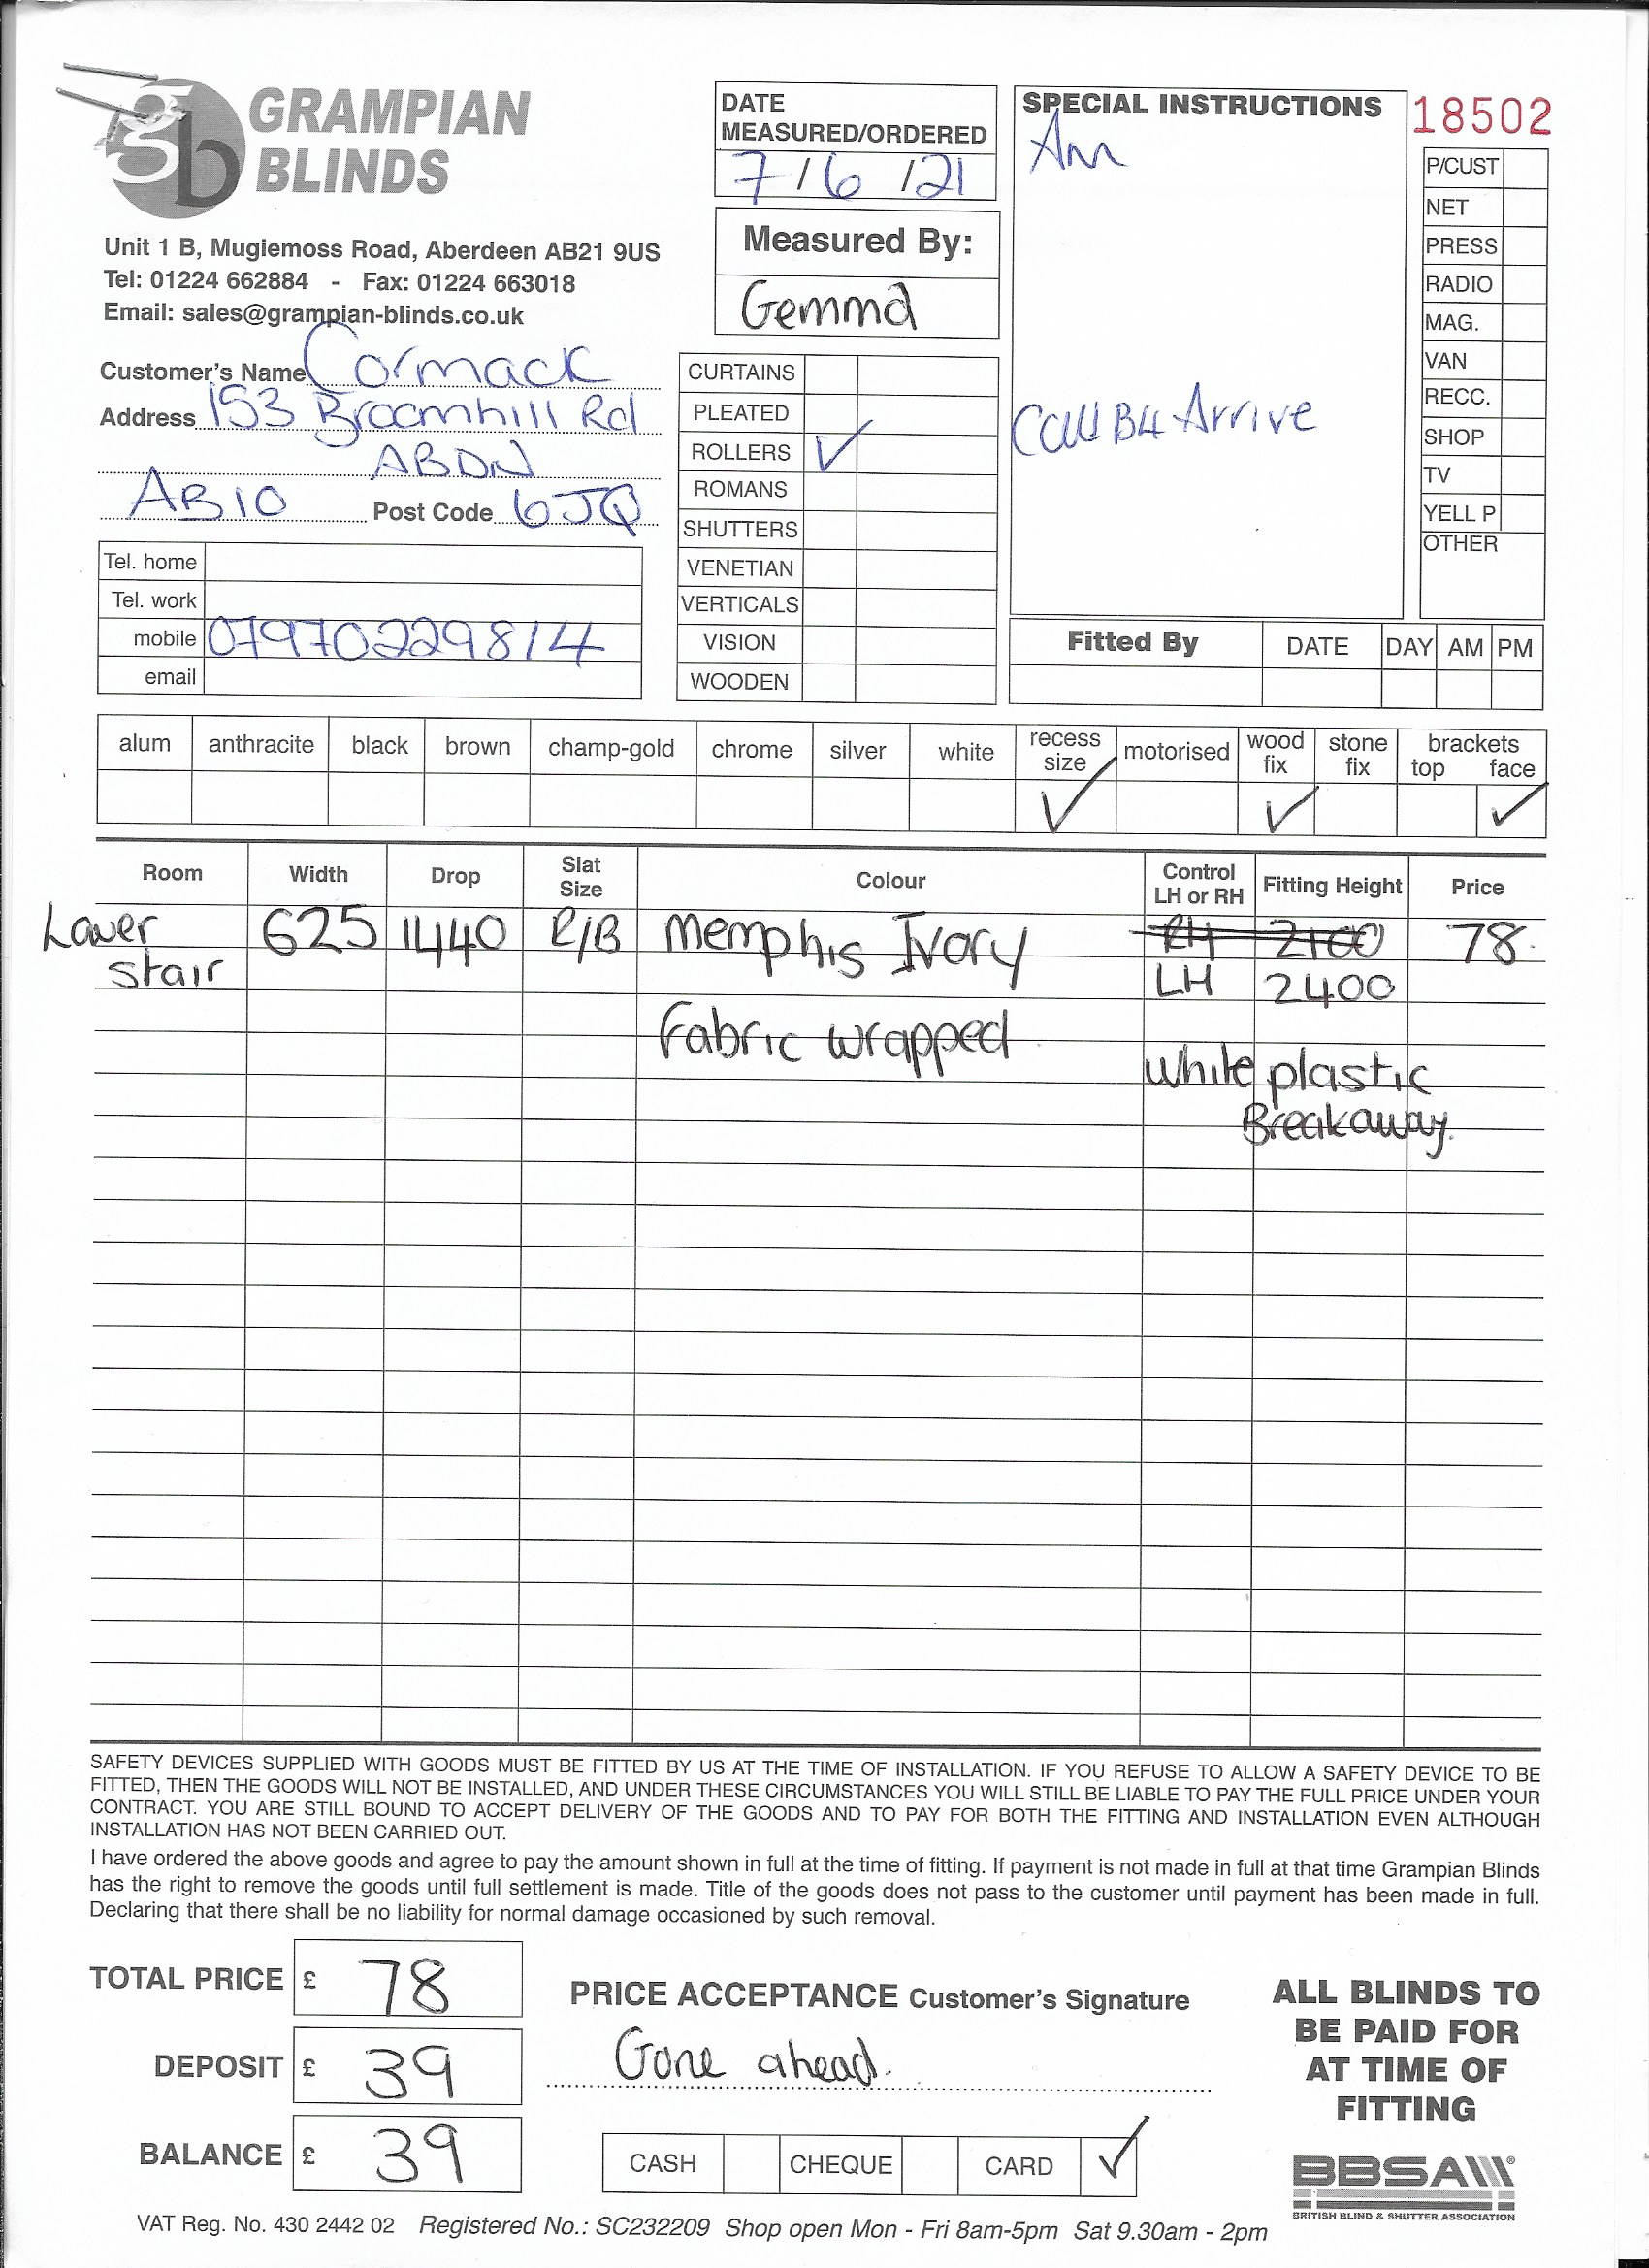 GRAMPIAN
BLINDS
Unit 1 B, Mugiemoss Road, Aberdeen AB21 9US
Tel: 01224 662884 - Fax: 01224 663018
Email: sales@grampian-blinds.co.uk
Customer's Name Cormack
Address 153 Broomhill Rd
ABDN
AB10 Post Code 6JQ
Tel. home
Tel. work
mobile 07970229814
email
DATE
MEASURED/ORDERED
7/6/21
Measured By:
Gemma
CURTAINS
PLEATED
ROLLERS ✓
ROMANS
SHUTTERS
VENETIAN
VERTICALS
VISION
WOODEN
SPECIAL INSTRUCTIONS
Ann
Call B4 Arrive
18502
P/CUST
NET
PRESS
RADIO
MAG.
VAN
RECC.
SHOP
TV
YELL P
OTHER
Fitted By DATE DAY AM PM
alum anthracite black brown champ-gold chrome silver white recess size motorised wood fix stone fix brackets top face
✓ ✓ ✓
Room Width Drop Slat Size Colour Control LH or RH Fitting Height Price
Lower 625 1440 R/B Memphis Ivory RH 2100 78
stair LH 2400
Fabric wrapped
white plastic
Breakaway.
SAFETY DEVICES SUPPLIED WITH GOODS MUST BE FITTED BY US AT THE TIME OF INSTALLATION. IF YOU REFUSE TO ALLOW A SAFETY DEVICE TO BE
FITTED, THEN THE GOODS WILL NOT BE INSTALLED, AND UNDER THESE CIRCUMSTANCES YOU WILL STILL BE LIABLE TO PAY THE FULL PRICE UNDER YOUR
CONTRACT. YOU ARE STILL BOUND TO ACCEPT DELIVERY OF THE GOODS AND TO PAY FOR BOTH THE FITTING AND INSTALLATION EVEN ALTHOUGH
INSTALLATION HAS NOT BEEN CARRIED OUT.
I have ordered the above goods and agree to pay the amount shown in full at the time of fitting. If payment is not made in full at that time Grampian Blinds
has the right to remove the goods until full settlement is made. Title of the goods does not pass to the customer until payment has been made in full.
Declaring that there shall be no liability for normal damage occasioned by such removal.
TOTAL PRICE £ 78
DEPOSIT £ 39
BALANCE £ 39
PRICE ACCEPTANCE Customer's Signature
Gone ahead.
CASH CHEQUE CARD ✓
ALL BLINDS TO
BE PAID FOR
AT TIME OF
FITTING
BBSA
BRITISH BLIND & SHUTTER ASSOCIATION
VAT Reg. No. 430 2442 02 Registered No.: SC232209 Shop open Mon - Fri 8am-5pm Sat 9.30am - 2pm